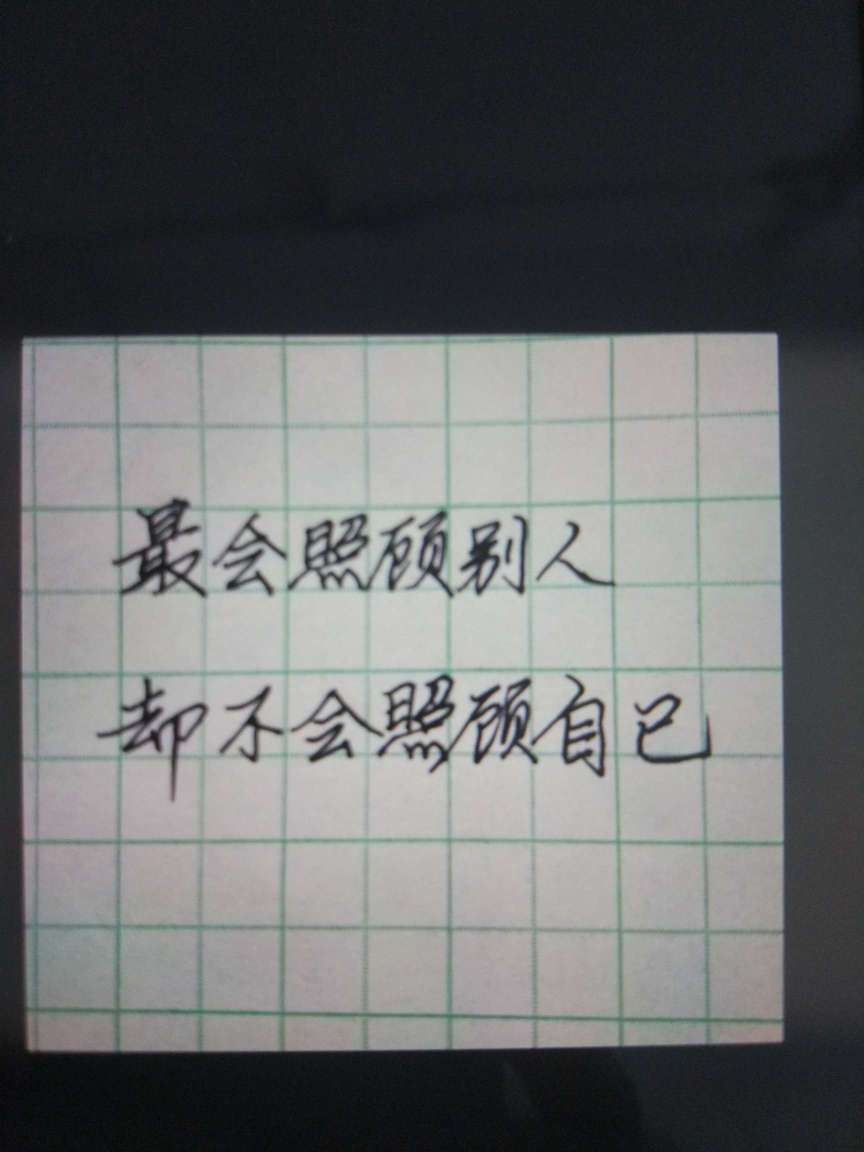 最会照顾别人
却不会照顾自己